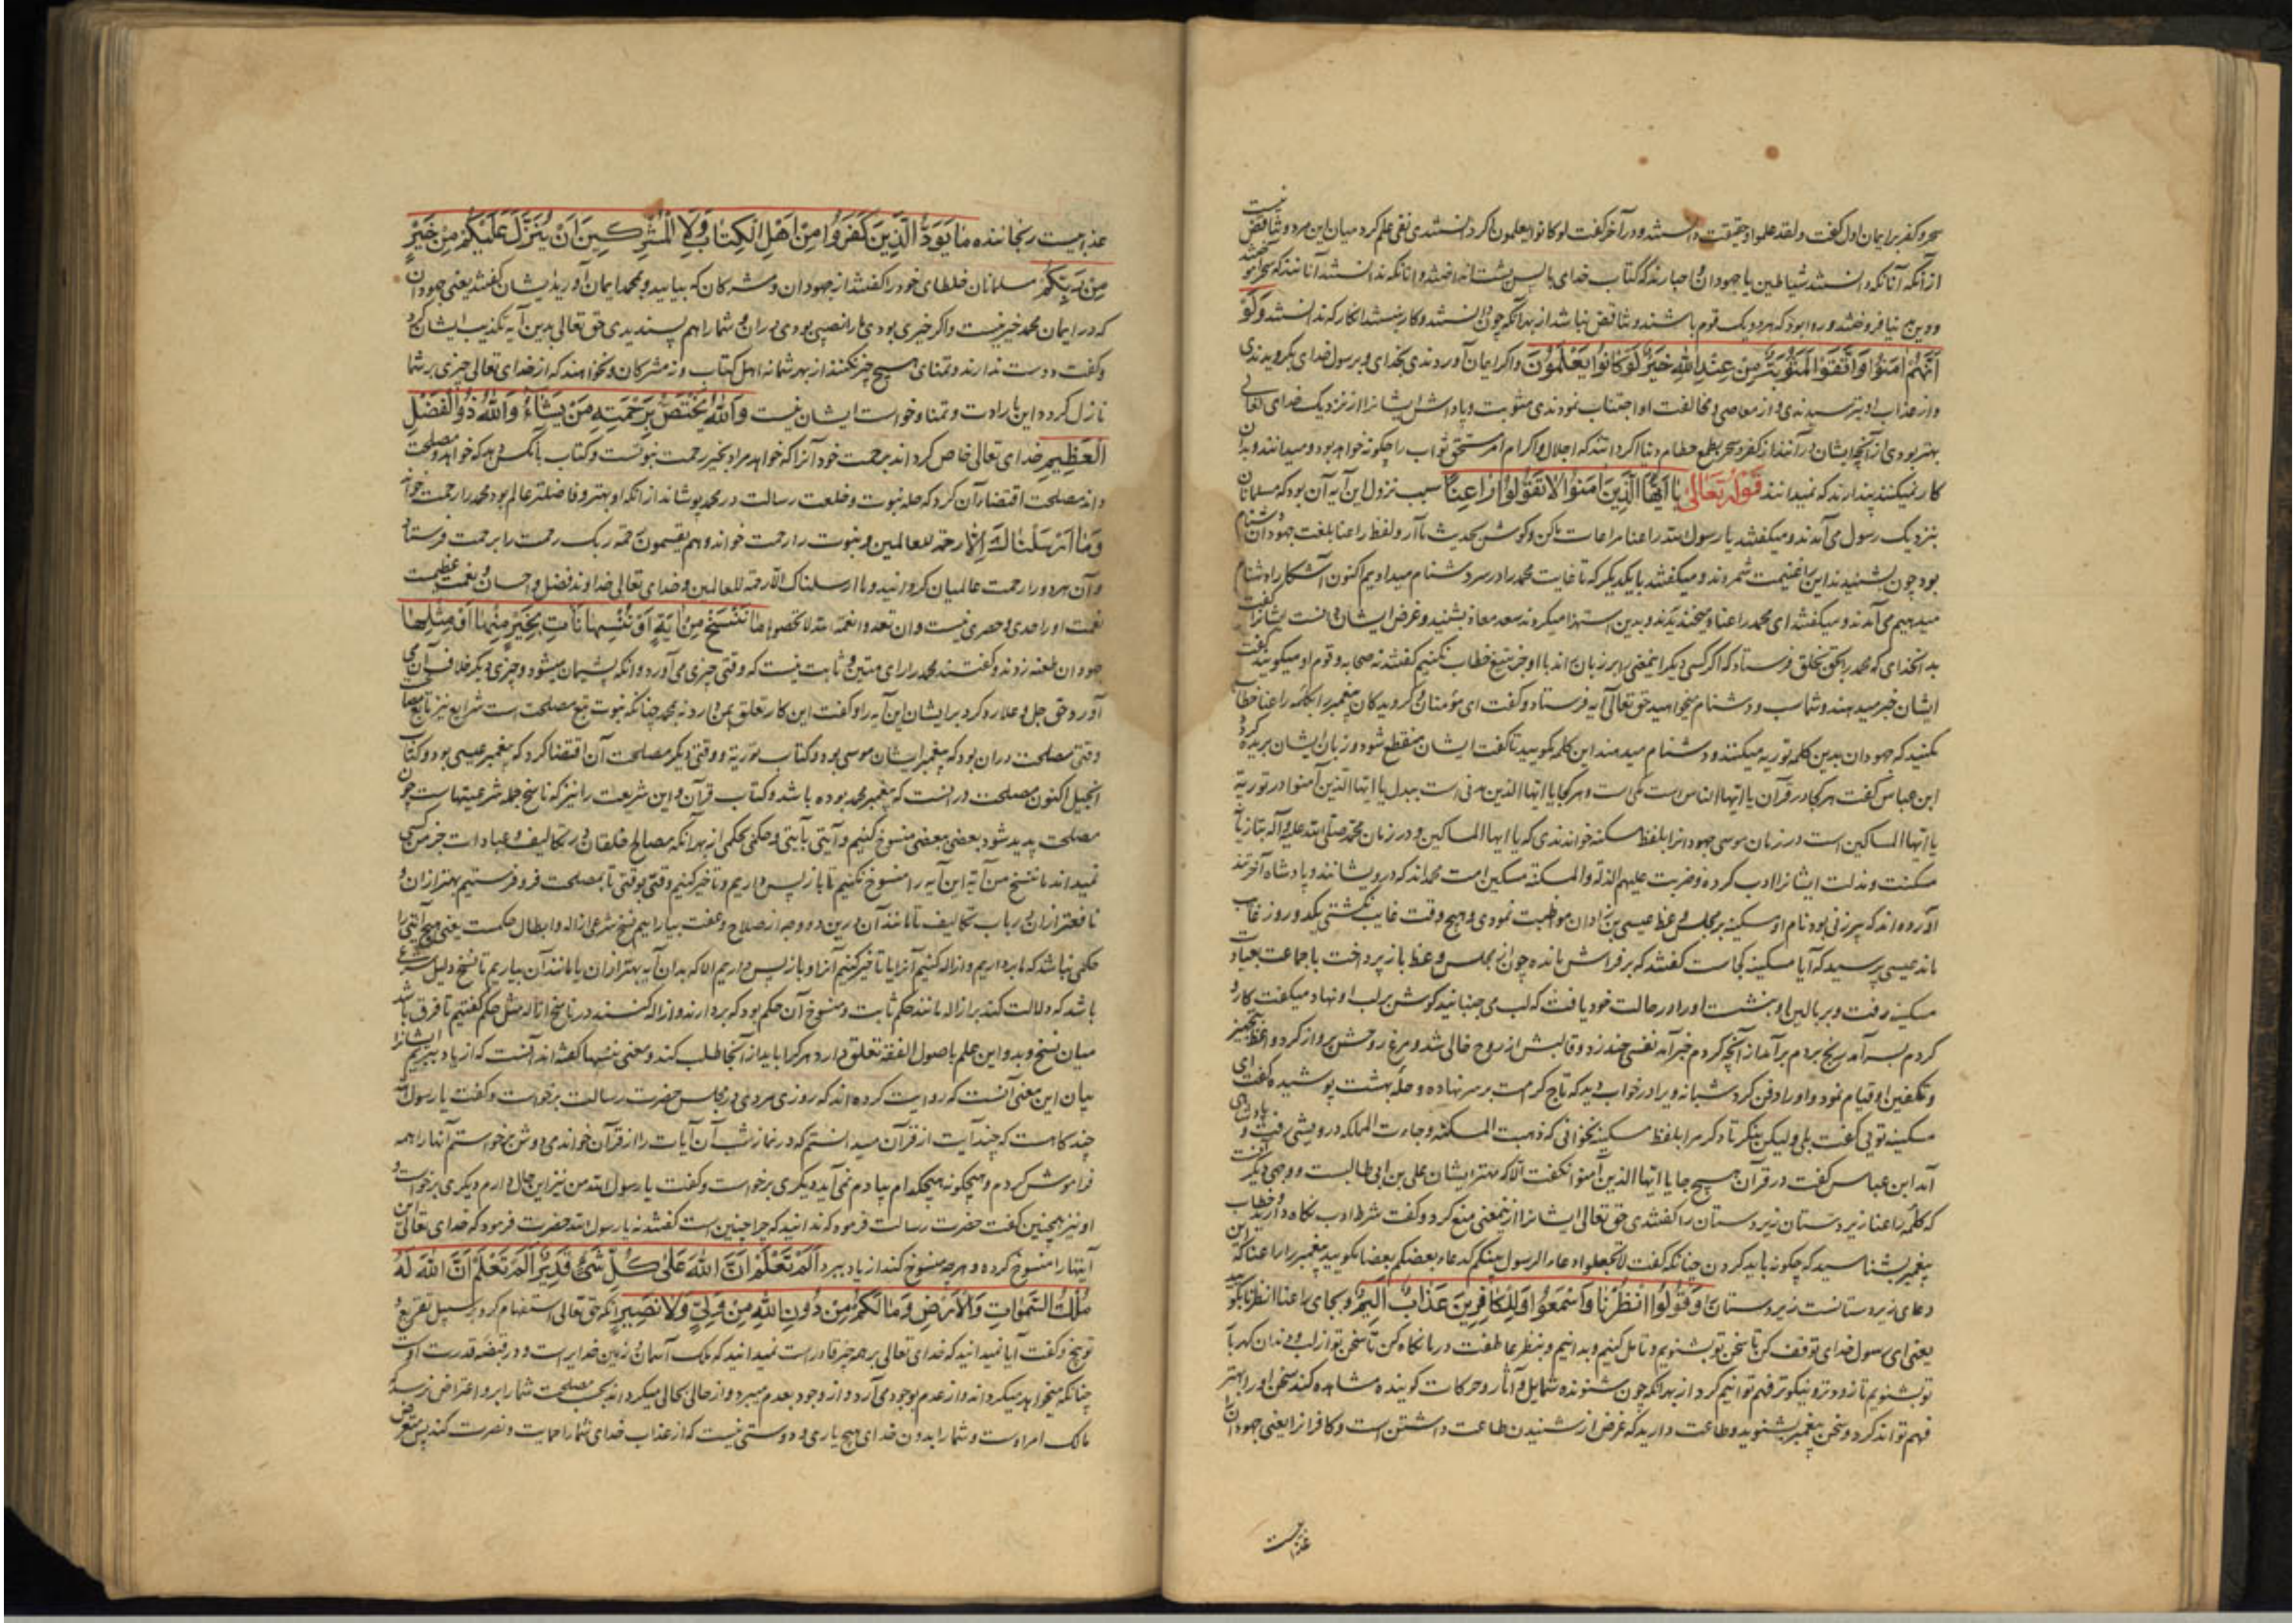 سحر و کفر بر ایمان اول گفت و لقد علموا و حقیقت دانستند و در آخر گفت لو کانوا یعلمون اگر دانستندی نفی علم کرد میان این هر دو تناقض نیست
از آنکه آنانکه دانستند شیاطین یا جهودان و احبارند که کتاب خدای با پس پشت انداختند و آنانکه ندانستند آنانند که سحر آموختند
و دین بدنیا فروختند و روا بود که هر دو یک قوم باشند و تناقض نباشد از بهر آنکه چون دانستند و کار نبستند انکار که ندانستند وَلَوْ
اَنَّهُمْ اٰمَنُوا وَاتَّقَوْا لَمَثُوبَةٌ مِنْ عِنْدِ اللهِ خَیْرٌ لَوْ كَانُوا یَعْلَمُونَ و اگر ایمان آوردندی بخدای و برسول خدای بگرویدندی
و از عذاب او بترسیدندی و از معاصی و مخالفت او اجتناب نمودندی مثوبت و پاداش ایشانرا از نزدیک خدای تعالی
بهتر بودی از آنچه ایشان در آنند از کفر و سحر بطمع حطام دنیا اگر دانند که اجلال و اکرام امر مستحق ثواب را چگونه خواهد بود و میدانند و بدان
کار نمیکنند پندارند که نمیدانند قَوْلُهُ تَعَالٰی یَا اَیُّهَا الَّذِینَ اٰمَنُوا لَا تَقُولُوا رَاعِنَا سبب نزول این آیه آن بود که مسلمانان
بنزدیک رسول می‌آمدند و میگفتند یا رسول الله راعنا مراعات ما کن و گوش بحدیث ما آر و لفظ راعنا بلغت جهودان دشنام
بود چون بشنیدند این را غنیمت شمردند و میگفتند با یکدیگر که تا غایت محمد را در سر دشنام میدادیم اکنون آشکارا دشنام
میدهیم می‌آمدند و میگفتند ای محمد راعنا و میخندیدند و بدین استهزا میکردند سعد معاذ بشنید و غرض ایشان دانست ایشانرا گفت
بدان خدای که محمد را بحق بخلق فرستاد که اگر کسی دیگر این معنی بر زبان راند با او جز بتیغ خطاب نکنیم گفتند نه صحابه و قوم او میگویند گفت
ایشان خبر میدهند و شما سب و دشنام میخواهید حق تعالی آیه فرستاد و گفت ای مؤمنان و گرویدگان پیغمبر را بکلمه راعنا خطاب
مکنید که جهودان بدین کلمه توریه میکنند و دشنام میدهند این کلمه مگویید تا گفت ایشان منقطع شود و زبان ایشان بریده گردد
ابن عباس گفت هر کجا در قرآن یا ایها الناس است مکی است و هر کجا یا ایها الذین مدنی است ببدل یا ایها الذین آمنوا در توریة
یا ایها المساکین است در زمان موسی جهودانرا بلفظ مسکنه خواندندی که یا ایها المساکین و در زمان محمد صلی الله علیه و آله بتازیانه
مسکنت و مذلت ایشانرا ادب کرده و ضربت علیهم الذلة والمسکنة مسکین امت محمداند که درویشانند و پادشاه آخرتند
آورده‌اند که پیرزنی بود نام او مسکینه بر مجلس وعظ عیسی بن زادان مواظبت نمودی و هیچ وقت غایب نگشتی یکدو روز غایب
ماند عیسی پرسید که آیا مسکینه کجاست گفتند که بر فراش مانده چون از مجلس وعظ باز پرداخت با جماعت بعیادت
مسکینه رفت و بر بالین او بنشست او را در حالت خود یافت که لب می جنبانید گوش بر لب او نهاد میگفت کار
کردم بسر آمد رنج بردم برآمد از آنچه کردم خبر آمد نفسی چند زد و قالبش از روح خالی شد و مرغ روحش پرواز کرد واعظ بتجهیز
و تکفین او قیام نمود و او را دفن کرد شبانه ویرا در خواب دید که تاج کرامت بر سر نهاده و حله بهشت پوشیده گفت ای
مسکینه تویی گفت بلی ولیکن بنگر تا دگر مرا بلفظ مسکینه نخوانی که ذهبت المسکنة وجاءت المملکة درویشی رفت و پادشاهی
آمد ابن عباس گفت در قرآن هیچ جا یا ایها الذین آمنوا نگفت الا که مهتر ایشان علی بن ابی طالبست و وجهی دیگر آنست
که کلمه راعنا زیردستان زیردستان را گفتندی حق تعالی ایشانرا ازین معنی منع کرد و گفت شرط ادب نگاه دارید و خطاب
پیغمبر بشناسید که چگونه باید کردن چنانکه گفت لا تجعلوا دعاء الرسول بینکم کدعاء بعضکم بعضا مگویید پیغمبر را راعنا که این
دعای زیردستانست زیردستان را وَقُولُوا انْظُرْنَا وَاسْمَعُوا وَلِلْكَافِرِینَ عَذَابٌ اَلِیمٌ و بجای راعنا انظرنا بگویید
یعنی ای رسول خدای توقف کن تا سخن تو بشنویم و تأمل کنیم و بدانیم و بنظر عاطفت در ما نگاه کن تا سخن تو از لب و دندان گهربار
تو بشنویم تا زودتر و نیکوتر فهم توانیم کرد از بهر آنکه چون شنونده شمایل و آثار و حرکات گوینده مشاهده کند سخن او را بهتر
فهم تواند کرد و سخن پیغمبر بشنوید و طاعت دارید که غرض از شنیدن طاعت داشتن است و کافرانرا یعنی جهودانرا
عذابیست
عذابیست رنجاننده مَا یَوَدُّ الَّذِینَ كَفَرُوا مِنْ اَهْلِ الْكِتَابِ وَلَا الْمُشْرِكِینَ اَنْ یُنَزَّلَ عَلَیْكُمْ مِنْ خَیْرٍ
مِنْ رَبِّكُمْ مسلمانان خلطای خود را گفتند از جهودان و مشرکان که بیایید و بمحمد ایمان آورید ایشان گفتند یعنی جهودان
که در ایمان محمد خیر نیست و اگر خیری بودی ما را نصیبی بودی در آن و شما را هم پسندیدی حق تعالی بدین آیه تکذیب ایشان کرد
و گفت دوست ندارند و تمنای هیچ چیز نکنند از بهر شما نه اهل کتاب و نه مشرکان و نخواهند که از خدای تعالی چیزی بر شما
نازل کردد این بارادت و تمنا و خواست ایشان نیست وَاللهُ یَخْتَصُّ بِرَحْمَتِهِ مَنْ یَشَاءُ وَاللهُ ذُو الْفَضْلِ
الْعَظِیمِ خدای تعالی خاص گرداند برحمت خود آنرا که خواهد مراد بخیر رحمت نبوتست و کتاب بآنکس دهد که خواهد و مصلحت
داند مصلحت اقتضای آن کرد که حله نبوت و خلعت رسالت در محمد پوشاند از آنکه او بهتر و فاضلتر عالم بود محمد را رحمت خواند
وَمَا اَرْسَلْنَاكَ اِلَّا رحمة للعالمین و نبوت را رحمت خواند و هم یقسمون رحمة ربک رحمت را برحمت فرستاد
و آن هر دو را رحمت عالمیان گردانید و ما ارسلناک الا رحمة للعالمین و خدای تعالی خداوند فضل و احسان و نعمت عظیمست
نعمت او را حدی و حصری نیست و ان تعدوا نعمة الله لا تحصوها مَا نَنْسَخْ مِنْ اٰیَةٍ اَوْ نُنْسِهَا نَأْتِ بِخَیْرٍ مِنْهَا اَوْ مِثْلِهَا
جهودان طعنه زدند و گفتند محمد را رای متین و ثابت نیست که وقتی چیزی می‌آورد و آنکه پشیمان میشود و چیزی دیگر خلاف آن می
آورد حق جل و علا رد کرد بر ایشان این آیه را و گفت این کار تعلق بمن دارد نه محمد چنانکه نبوت تبع مصلحت است شرایع نیز تابع مصالح
وقتی مصلحت در آن بود که پیغمبر ایشان موسی بود و کتاب توریة و وقتی دیگر مصلحت آن اقتضا کرد که پیغمبر عیسی بود و کتاب
انجیل اکنون مصلحت در آنست که پیغمبر محمد بوده باشد و کتاب قرآن و این شریعت را نیز که ناسخ جمله شریعتهاست چون
مصلحت پدید شود بعضی ببعضی منسوخ کنیم و آیتی بآیتی و حکمی بحکمی از بهر آنکه مصالح خلقان در تکالیف و عبادات جز من کسی
نمیداند ما ننسخ من آیة این آیه را منسوخ نکنیم تا باز پس داریم و تأخیر کنیم وقتی بوقتی تا بمصلحت فرو فرستیم بهتر از آن و
نافعتر از آن در باب تکالیف تا مانند آن درین دو وجه از صلاح و عفت بیاراییم نسخ شرعی ازاله و ابطال حکمست یعنی هیچ آیتی را
حکمی نباشد که ما برداریم و ازاله کنیم آنرا یا تأخیر کنیم آنرا و باز پس داریم الا که بدان آیه بهتر از آن یا مانند آن بیاریم تا نسخ دلیل شرعی
باشد که دلالت کند بر ازاله مانند حکم ثابت و منسوخ آن حکم بود که بردارند و ازاله کنند در ناسخ ازاله مثل حکم گفتیم تا فرق باشد
میان نسخ و بدو این علم باصول الفقه تعلق دارد هر کرا باید از آنجا طلب کند و معنی ننسها گفته‌اند آنست که از یاد ببریم ایشانرا
بیان این معنی آنست که روایت کرده‌اند که روزی مردی در مجلس حضرت رسالت برخواست و گفت یا رسول الله
چندگاهست که چند آیت از قرآن میدانستم که در نماز شب آن آیات را از قرآن خواندمی دوش برخواستم آنها را همه
فراموش کردم و هیچگونه هیچکدام بیادم نمی‌آید دیگری برخواست و گفت یا رسول الله من نیز این حال دارم دیگری برخواست و
او نیز همچنین گفت حضرت رسالت فرمود که ندانید که چرا چنین است گفتند نه یا رسول الله حضرت فرمود که خدای تعالی این
آیتها را منسوخ کرده و هر چه منسوخ کند از یاد ببرد اَلَمْ تَعْلَمْ اَنَّ اللهَ عَلٰی كُلِّ شَیْءٍ قَدِیرٌ اَلَمْ تَعْلَمْ اَنَّ اللهَ لَهُ
مُلْكُ السَّمٰوَاتِ وَالْاَرْضِ وَمَا لَكُمْ مِنْ دُونِ اللهِ مِنْ وَلِیٍّ وَلَا نَصِیرٍ آنکه حق تعالی استفهام کرد بر سبیل تقریع و
توبیخ و گفت آیا نمیدانید که خدای تعالی بر همه چیز قادر است نمیدانید که ملک آسمان و زمین خدایراست و در قبضه قدرت اوست
چنانکه میخواهد میگرداند و از عدم بوجود می‌آرد و از وجود بعدم میبرد و از حالی بحالی میگرداند بحسب مصلحت شما را بر او اعتراض نرسد که
مالک امر اوست و شما را بدون خدای هیچ یاری و دوستی نیست که از عذاب خدای شما را حمایت و نصرت کند پس متعرض